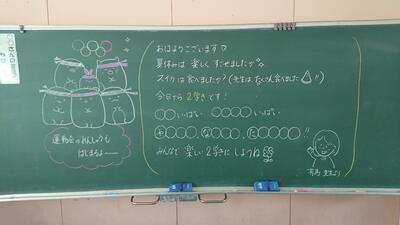 おはようございます
夏休みは 楽しく すごせましたか。
スイカは食べましたか?(先生は、たくさん食べました!!)
今日から 2学きです!
○○いっぱい ○○○○いっぱい
や○○○○、な○○○○、た○○○○○!!
みんなで 楽しい 2学きに しようね
運動会のれんしゅうも
はじまるよー